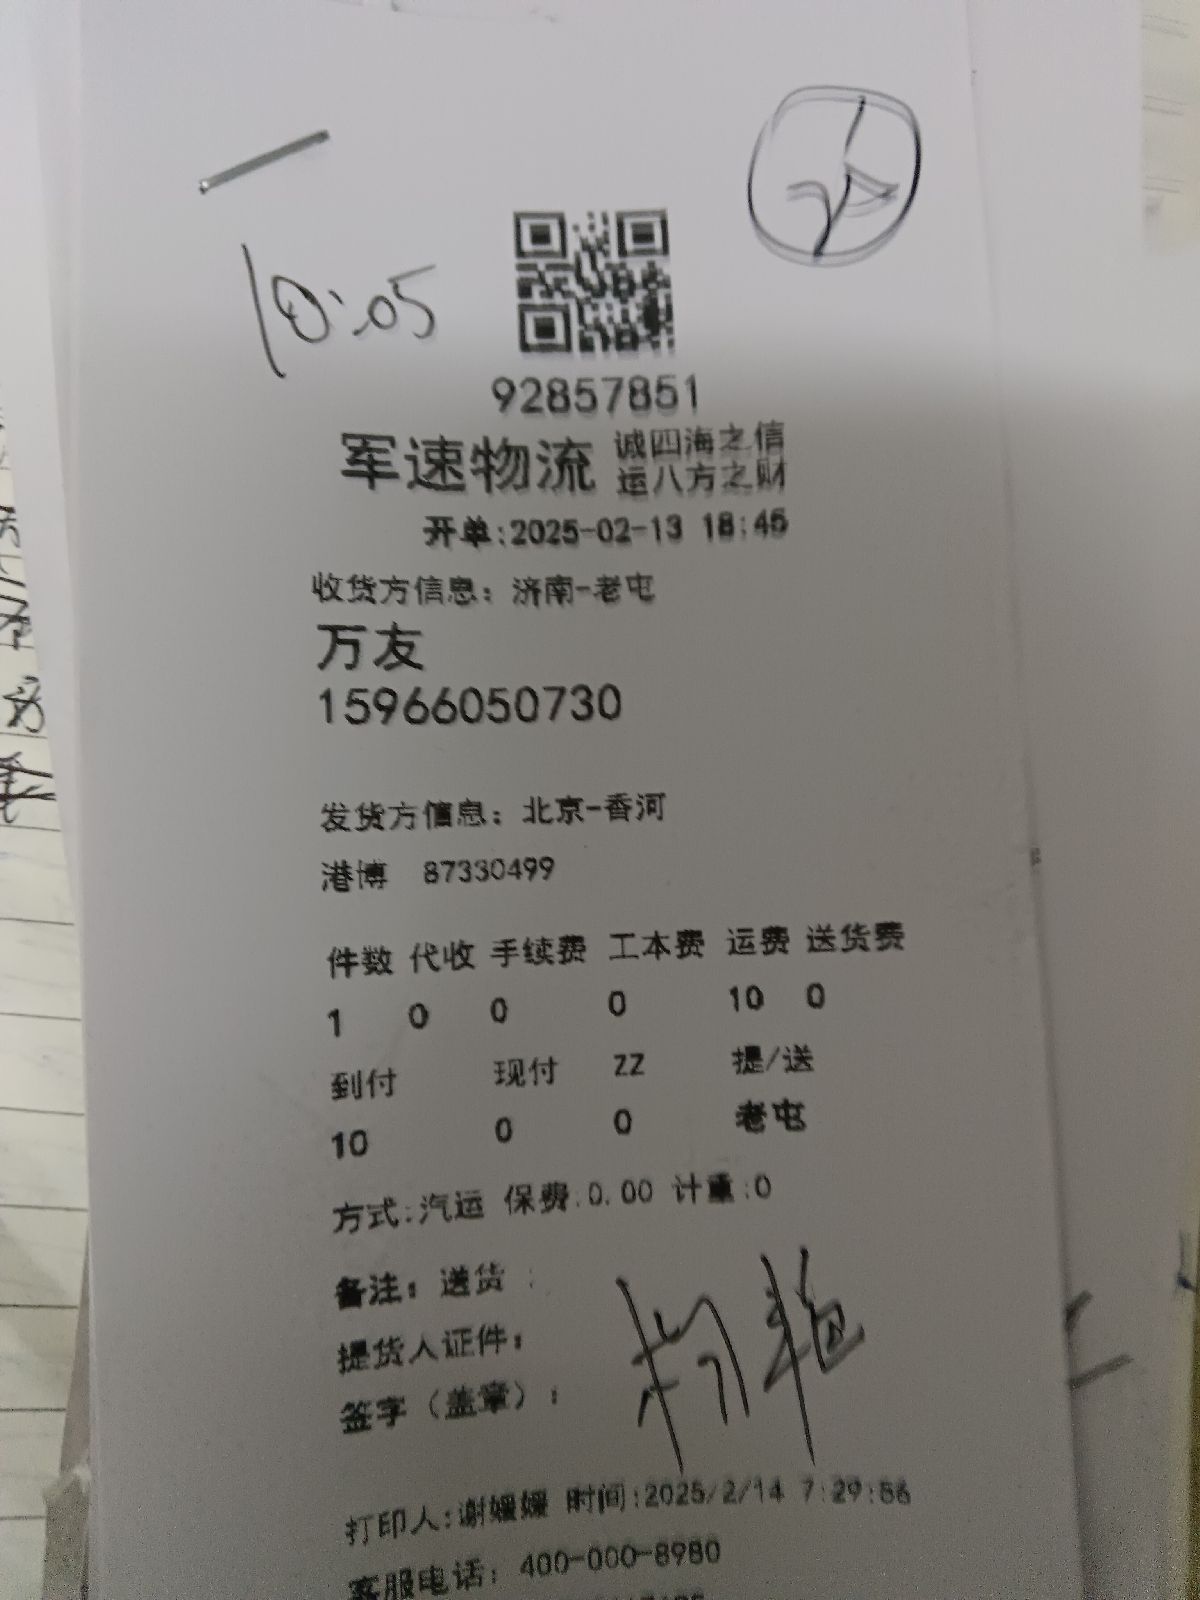 10:05
92857851
军速物流 诚四海之信
运八方之财
开单:2025-02-13 18:45
收货方信息: 济南-老屯
万友
15966050730
发货方信息: 北京-香河
港博 87330499
件数 代收 手续费 工本费 运费 送货费
1 0 0 0 10 0
到付 现付 ZZ 提/送
10 0 0 老屯
方式:汽运 保费:0.00 计重:0
备注: 送货 :
提货人证件:
签字（盖章）:
打印人:谢媛媛 时间:2025/2/14 7:29:56
客服电话: 400-000-8980